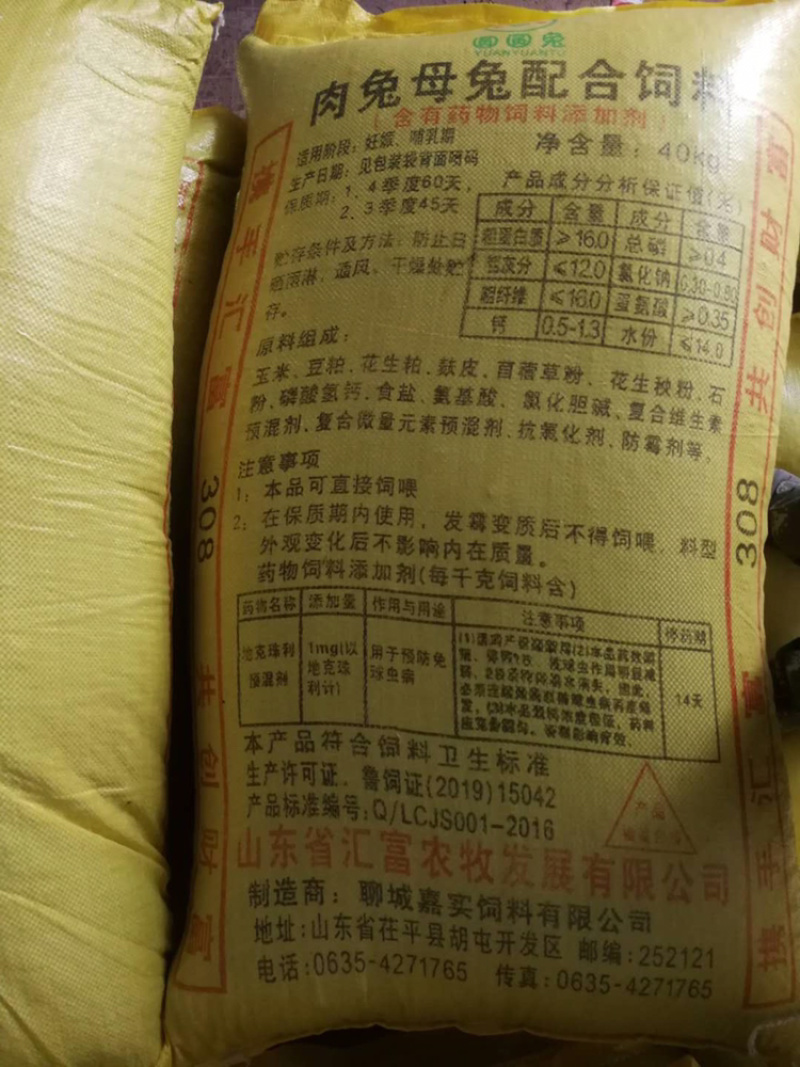 圆圆兔
YUANYUANTU
肉兔母兔配合饲料
(含有药物饲料添加剂)
适用阶段:妊娠、哺乳期
净含量:40kg
生产日期:见包装袋背面喷码
保质期:1、4季度60天,
2、3季度45天
产品成分分析保证值(%)
成分 含量 成分 含量
粗蛋白质 ≥16.0 总磷 ≥0.4
粗灰分 ≤12.0 氯化钠 0.30-0.80
粗纤维 ≤16.0 蛋氨酸 ≥0.35
钙 0.5-1.3 水份 ≤14.0
贮存条件及方法:防止日
晒雨淋,通风、干燥处贮
存。
原料组成:
玉米、豆粕、花生粕、麸皮、苜蓿草粉、花生秧粉、石
粉、磷酸氢钙、食盐、氨基酸、氯化胆碱、复合维生素
预混剂、复合微量元素预混剂、抗氧化剂、防霉剂等。
注意事项
1:本品可直接饲喂
2:在保质期内使用,发霉变质后不得饲喂,料型
外观变化后不影响内在质量。
药物饲料添加剂(每千克饲料含)
药物名称 添加量 作用与用途 注意事项 停药期
地克珠利
预混剂
1mg(以
地克珠
利计)
用于预防兔
球虫病
14天
本产品符合饲料卫生标准
生产许可证:鲁饲证(2019)15042
产品标准编号:Q/LCJS001-2016
产品
山东省汇富农牧发展有限公司
制造商:聊城嘉实饲料有限公司
地址:山东省茌平县胡屯开发区 邮编:252121
电话:0635-4271765 传真:0635-4271765
携手汇富 308 共创财富
携手汇富 308 共创财富